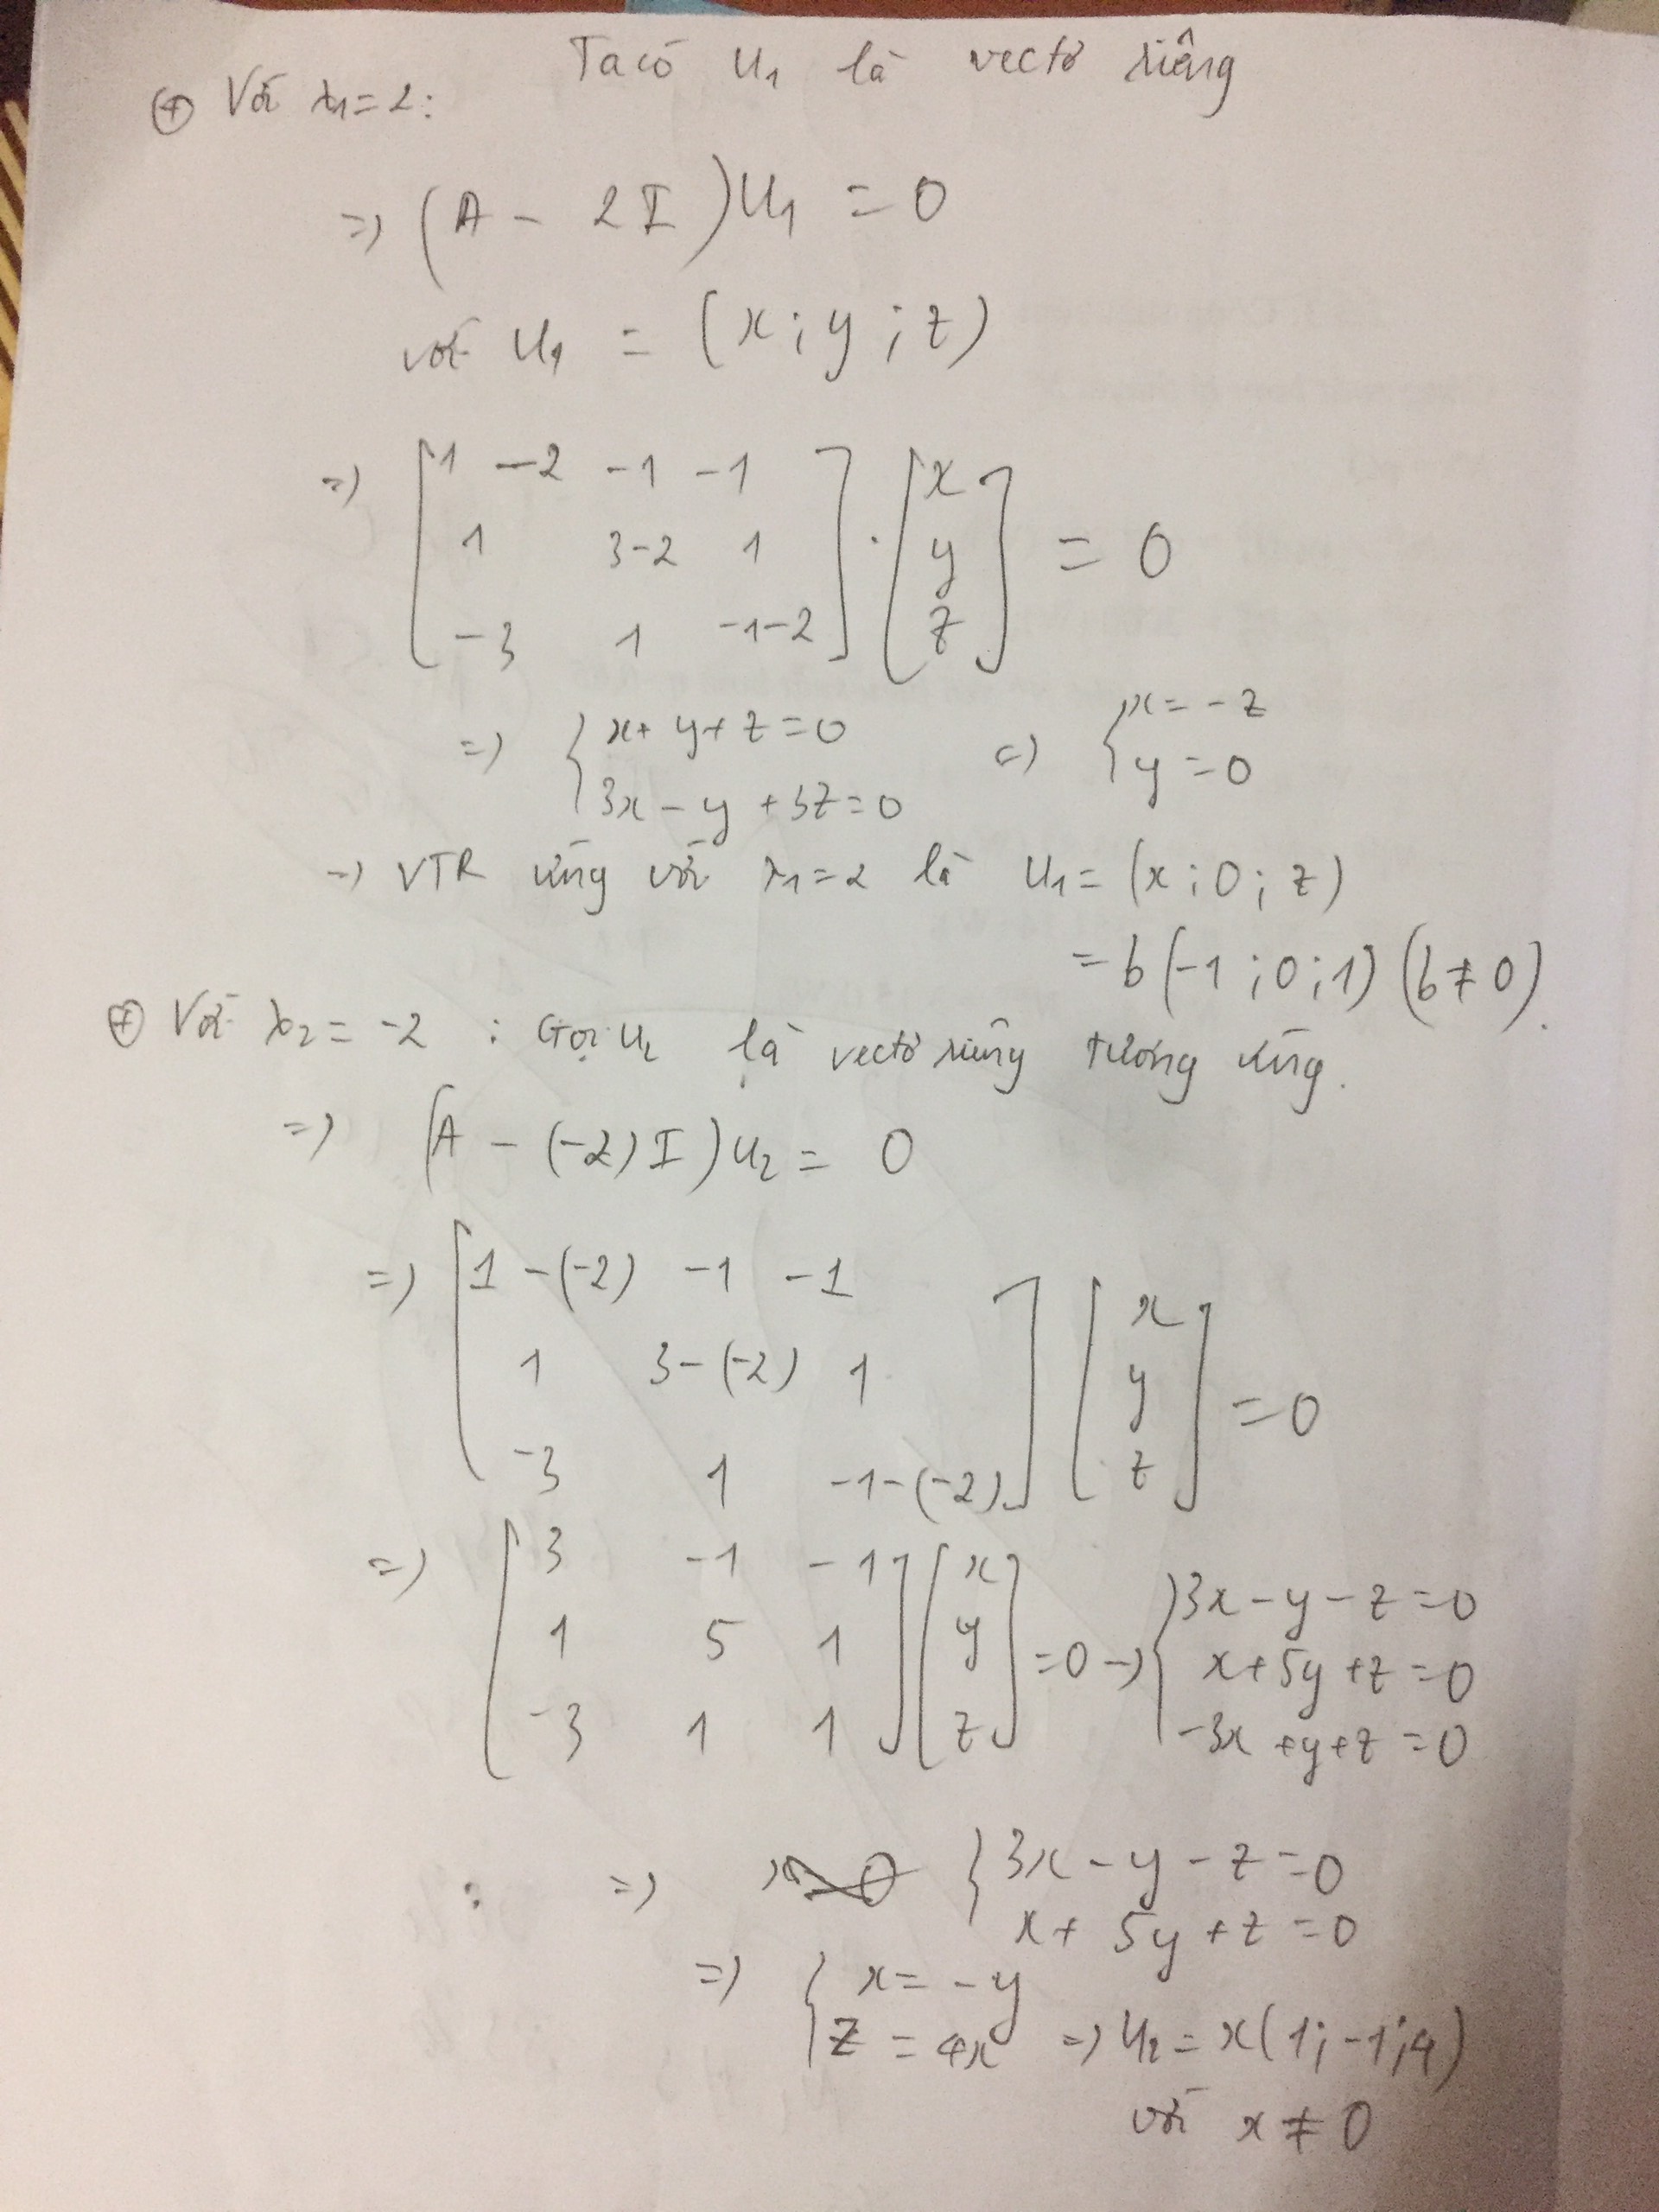 Ta có u₁ là vectơ riêng
⊕ Với λ₁=2:
=> (A - 2I)u₁ = 0
với u₁ = (x; y; z)
=> [1 -2 -1 -1
1 3-2 1
-3 1 -1-2] . [x
y
z] = 0
=> {x+y+z=0
3x-y+3z=0
<=> {x=-z
y=0
-> VTR ứng với λ₁=2 là u₁=(x;0;z)
= b(-1;0;1) (b≠0).
⊕ Với λ₂ = -2 : Gọi u₂ là vectơ riêng tương ứng.
=> (A - (-2)I)u₂ = 0
=> [1-(-2) -1 -1
1 3-(-2) 1
-3 1 -1-(-2)] [x
y
z] = 0
=> [3 -1 -1
1 5 1
-3 1 1] [x
y
z] = 0 -> {3x-y-z=0
x+5y+z=0
-3x+y+z=0
=> {3x-y-z=0
x+5y+z=0
=> {x=-y
z=4x => u₂=x(1;-1;4)
với x≠0